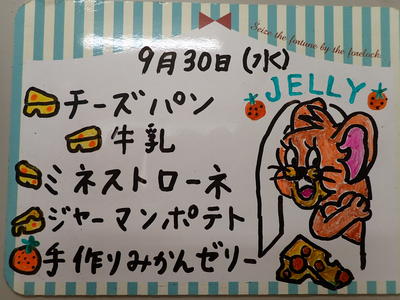 Seize the fortune by the forelock.
9月30日(水)
JELLY
チーズパン
牛乳
ミネストローネ
ジャーマンポテト
手作りみかんゼリー